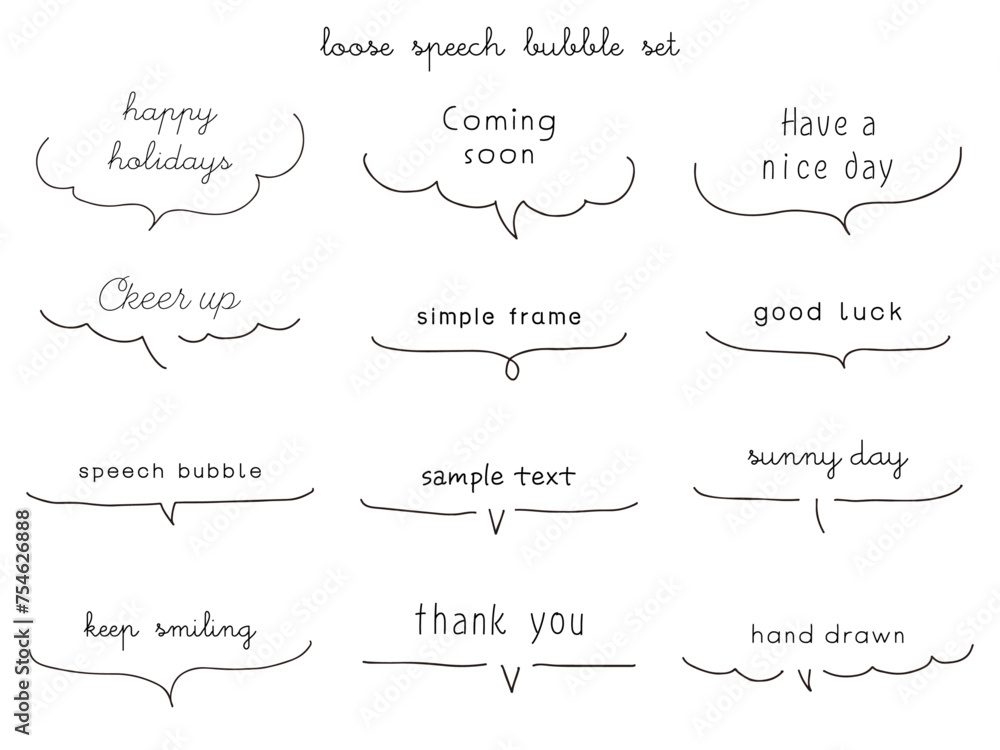 loose speech bubble set
happy
holidays
Coming
soon
Have a
nice day
Cheer up
simple frame
good luck
speech bubble
sample text
sunny day
keep smiling
thank you
hand drawn
Adobe Stock | #754626888